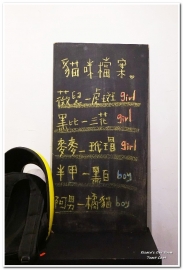 貓咪檔案。
薇兒—虎斑 girl
黑比—三花 girl
麥麥—玳瑁 girl
半甲—黑白 boy
阿勇—橘貓 boy